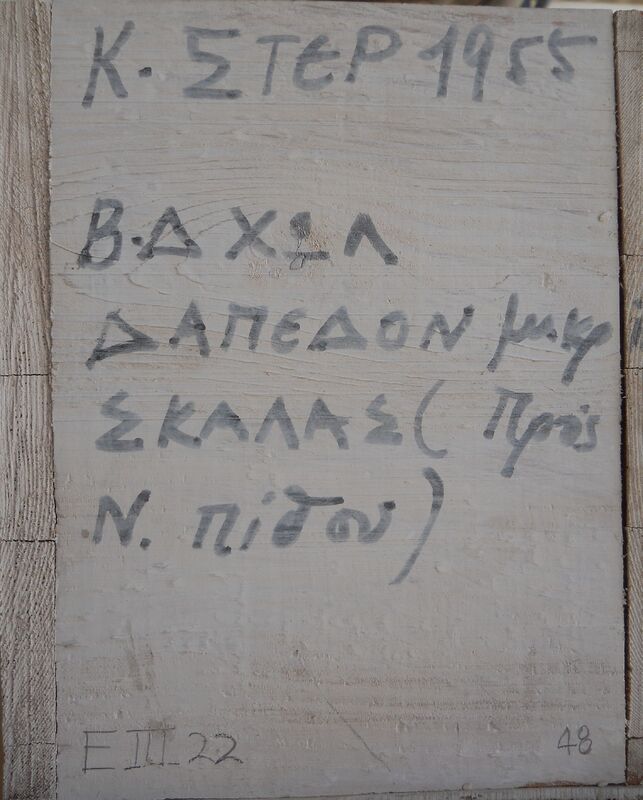 Κ. ΣΤΕΡ 1955
Β.Δ ΧΩΛ
ΔΑΠΕΔΟΝ μικρ
ΣΚΑΛΑΣ (Πρὸς
Ν. πίθου)
E III 22
48